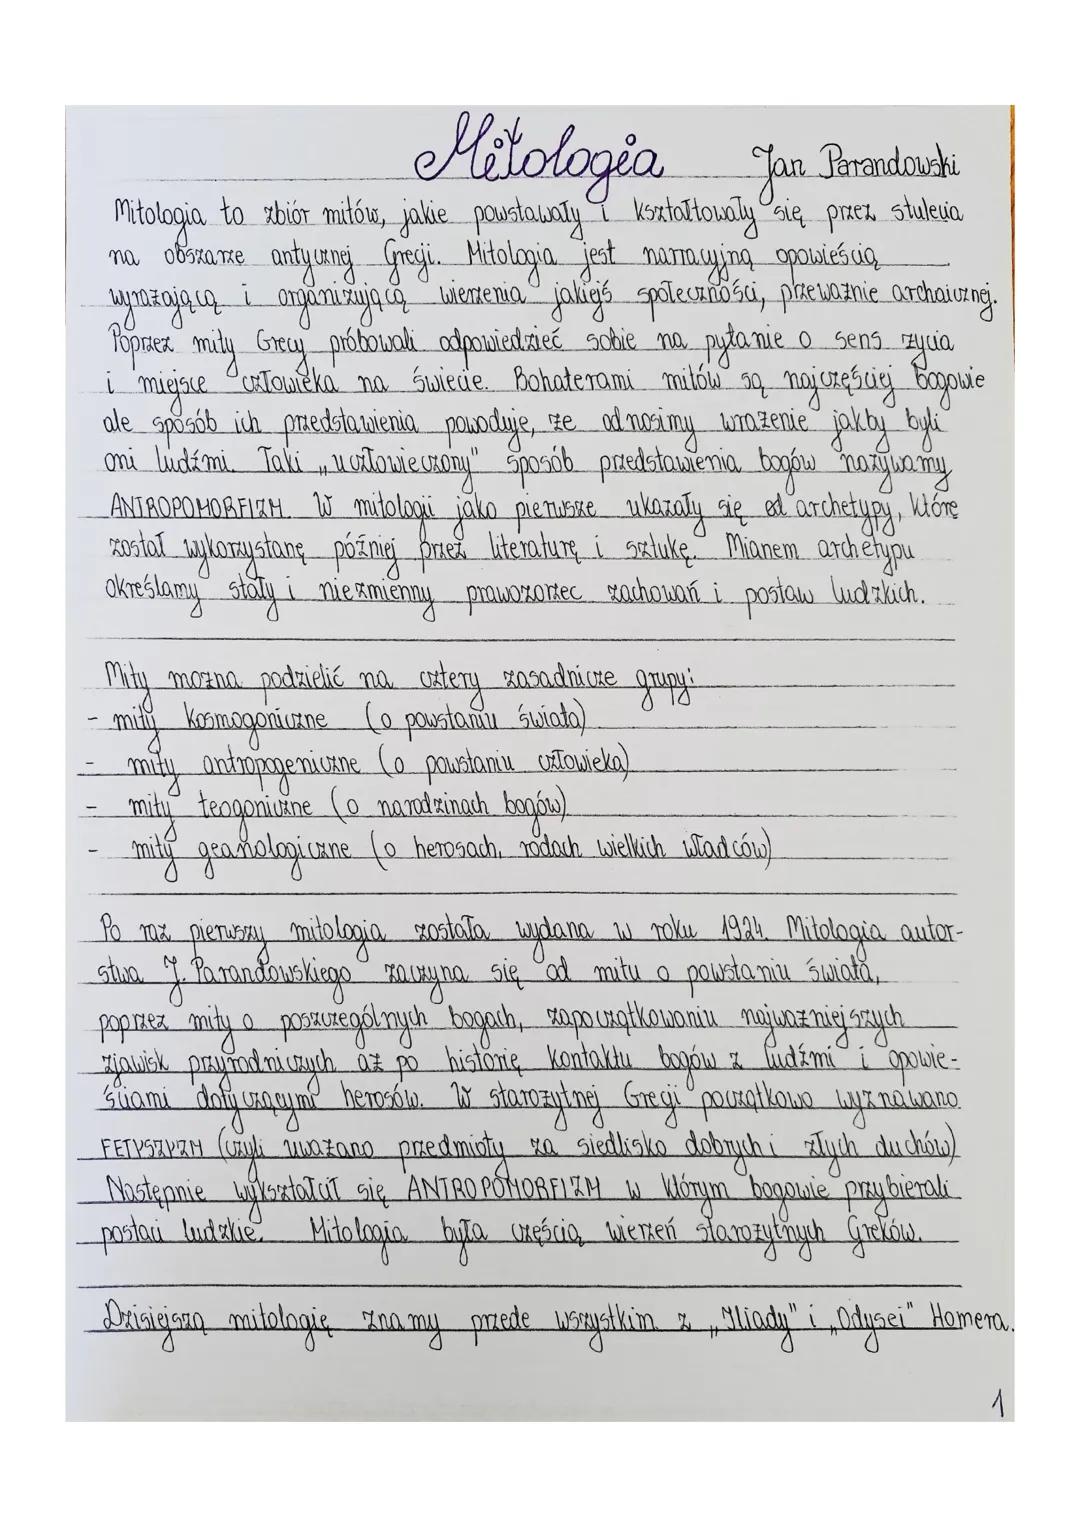 Mitologia Jan Parandowski
Mitologia to zbiór mitów, jakie powstawały i kształtowały się przez stulecia
na obszarze antycznej Gregi. Mitologia jest narracyjną opowieścią
wyrażającą i organizującą wierzenia jakiejś społeczności, przeważnie archaicznej.
Poprzez mity Grecy próbowali odpowiedzieć sobie na pytanie o sens życia
i miejsce człowieka na świecie. Bohaterami mitów są najczęściej bogowie
ale sposób ich przedstawienia powoduje, że odnosimy wrażenie jakby byli
oni ludźmi. Taki „uczłowieczony" sposób przedstawienia bogów nazywamy
ANTROPOMORFIZM. W mitologii jako pierwsze ukazały się archetypy, które
został wykorzystanę później przez literaturę i sztukę. Mianem archetypu
określamy stały i niezmienny prawozorzec zachowań i postaw ludzkich.
Mity można podzielić na cztery zasadnicze grupy:
- mity kosmogoniczne (o powstaniu świata)
- mity antropogeniczne (o powstaniu człowieka)
- mity teogoniczne (o narodzinach bogów)
- mity geanologiczne (o herosach, rodach wielkich władców)
Po raz pierwszy mitologia została wydana w roku 1924. Mitologia autor-
stwa J. Parandowskiego zaczyna się od mitu o powstaniu świata,
poprzez mity o poszczególnych bogach, zapoczątkowaniu najważniejszych
zjawisk przyrodniczych aż po historię kontaktu bogów z ludźmi i opowie-
ściami dotyczącymi herosów. W starożytnej Gregi początkowo wyznawano
FETYSZYZM (czyli uważano przedmioty za siedlisko dobrych i złych duchów)
Następnie wykształcił się ANTROPOMORFIZM w którym bogowie przybierali
postaci ludzkie. Mitologia była częścią wierzeń starożytnych Greków.
Dzisiejszą mitologię znamy przede wszystkim z „Iliady" i „Odysei" Homera.
1